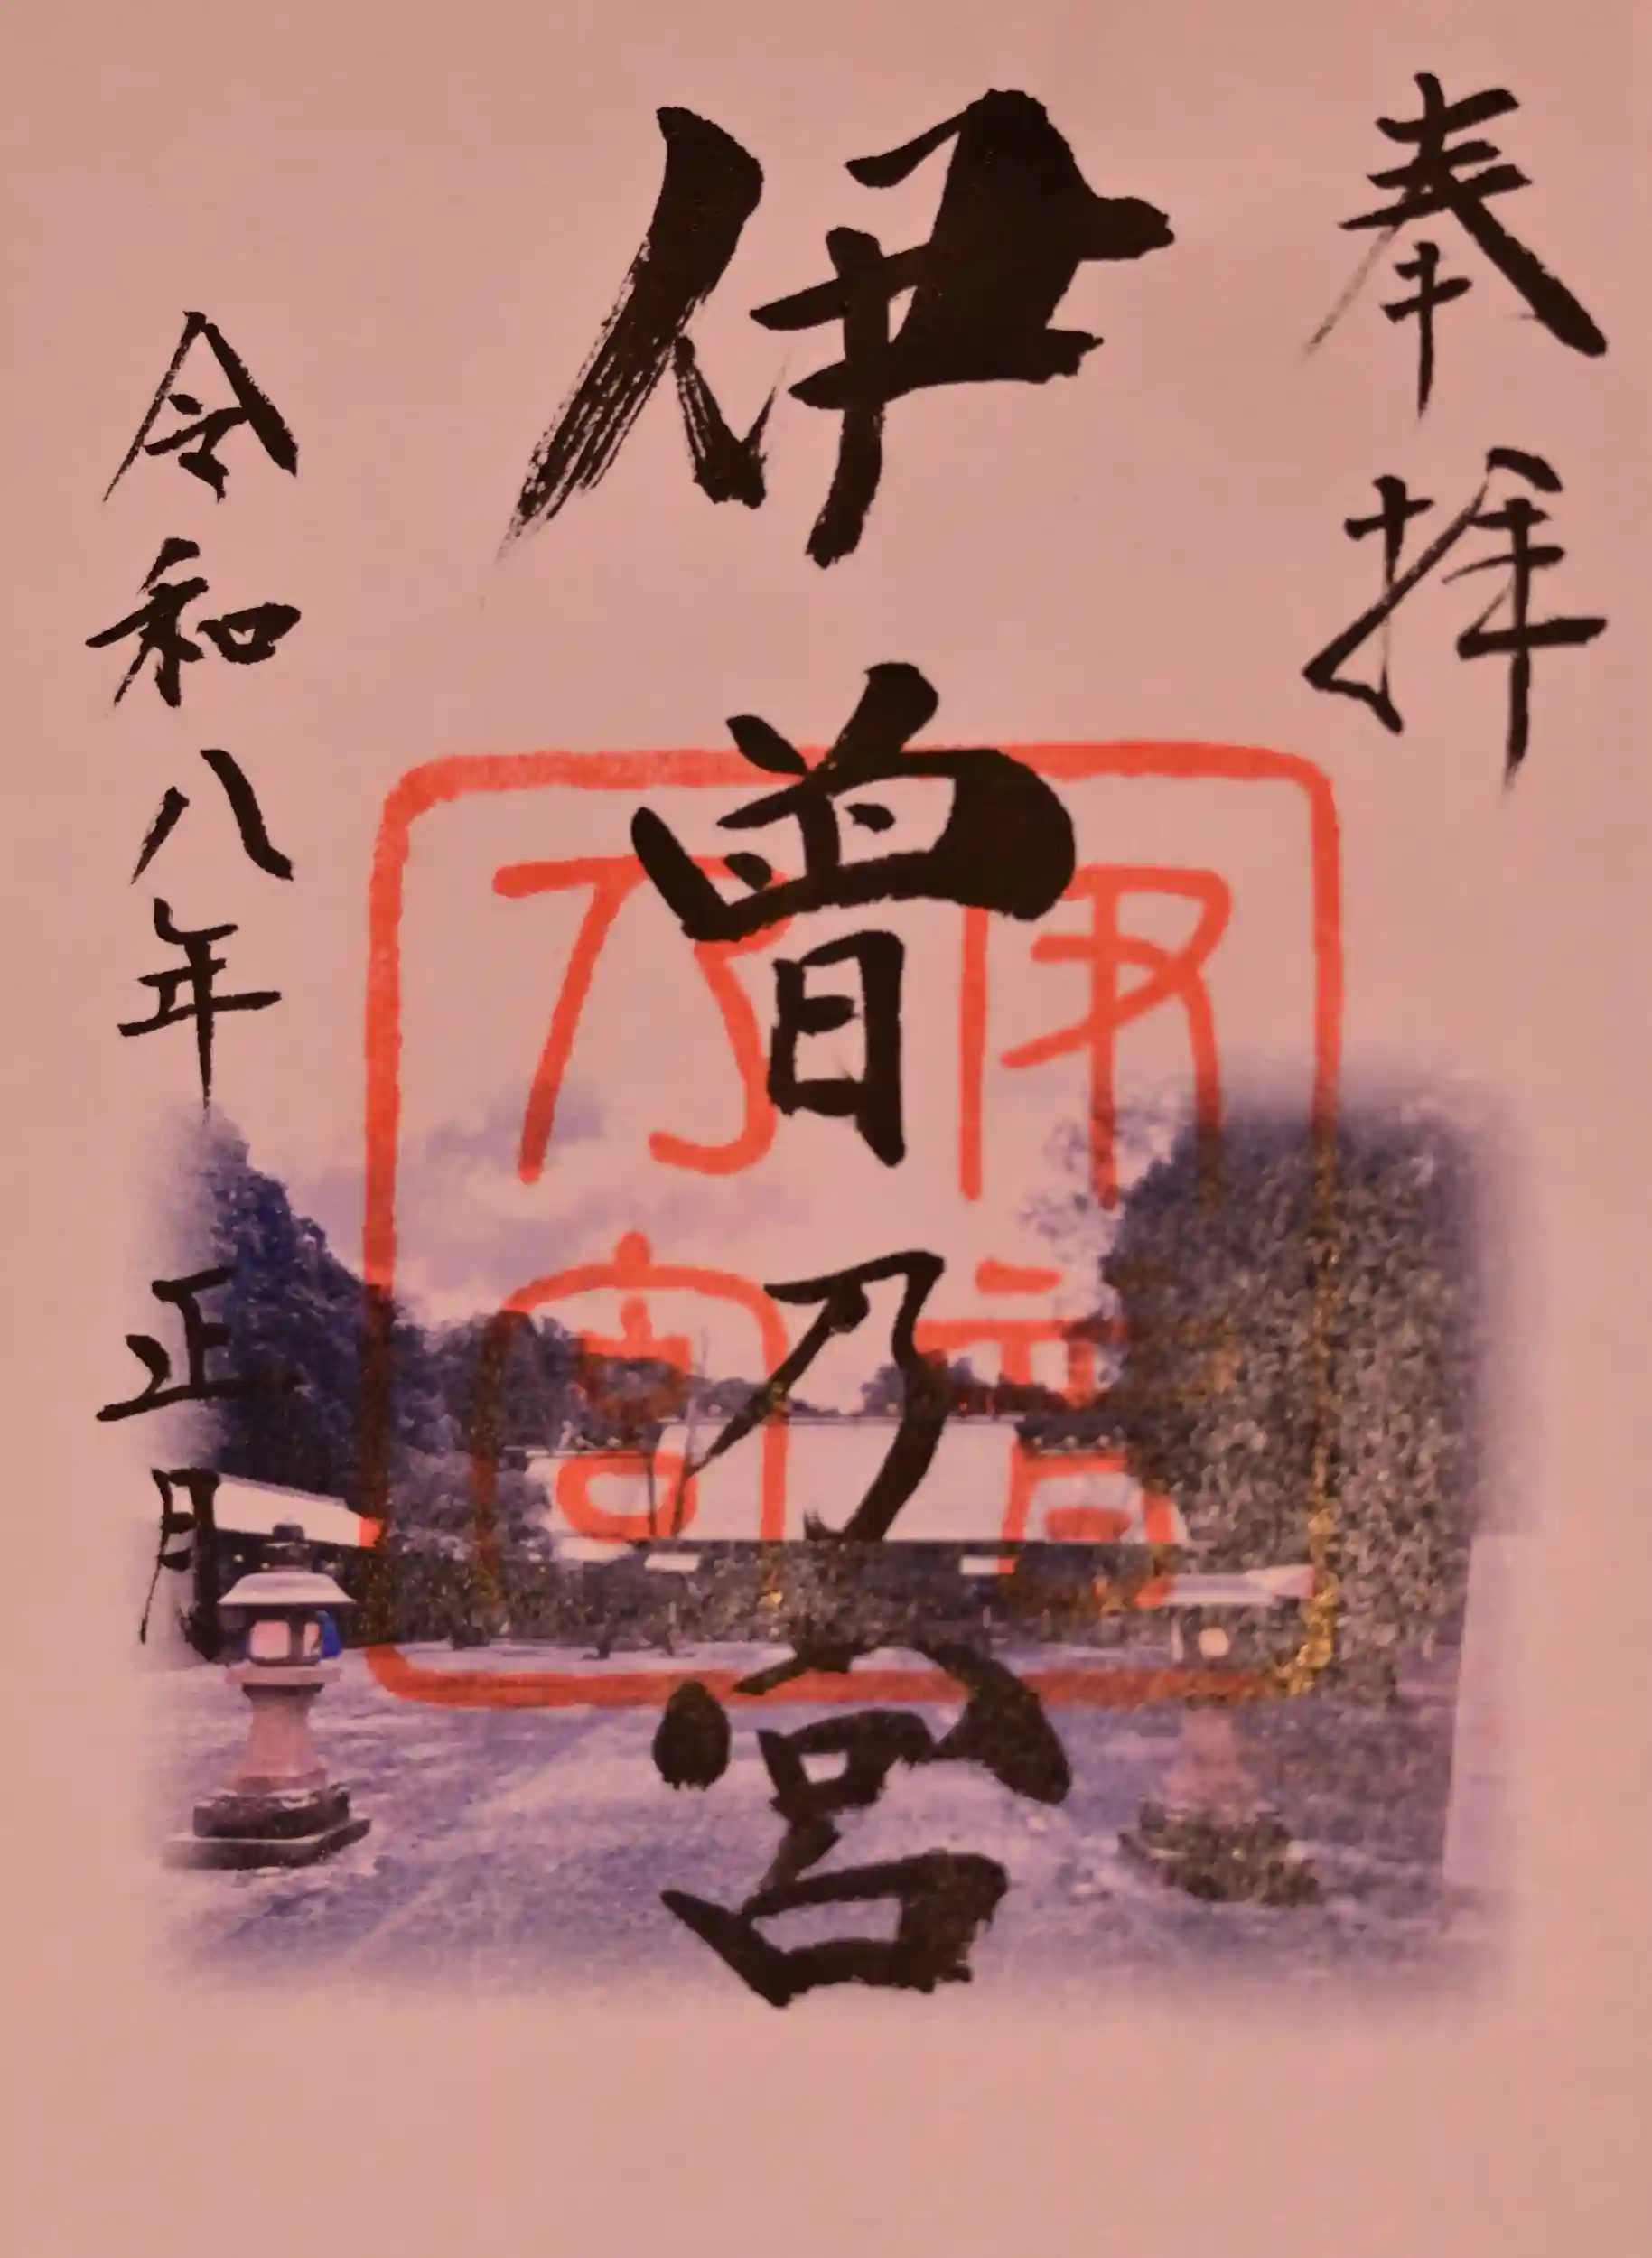 奉拝
伊曽乃宮
令和八年 正月
伊
乃宮